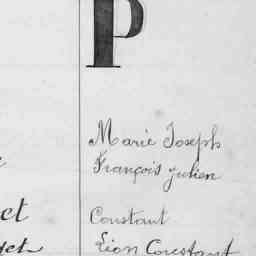 P
Marie Joseph
François Julien
ct Constant
Léon Constant